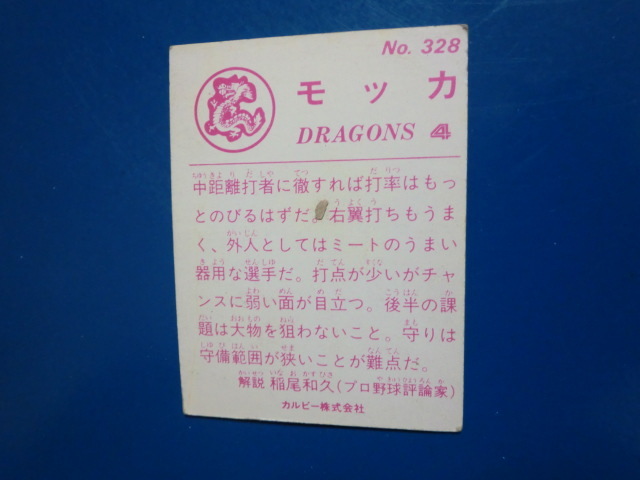 No. 328
モッカ
DRAGONS 4
中距離打者に徹すれば打率はもっ
とのびるはずだ。右翼打ちもうま
く、外人としてはミートのうまい
器用な選手だ。打点が少いがチャ
ンスに弱い面が目立つ。後半の課
題は大物を狙わないこと。守りは
守備範囲が狭いことが難点だ。
解説 稲尾和久(プロ野球評論家)
カルビー株式会社